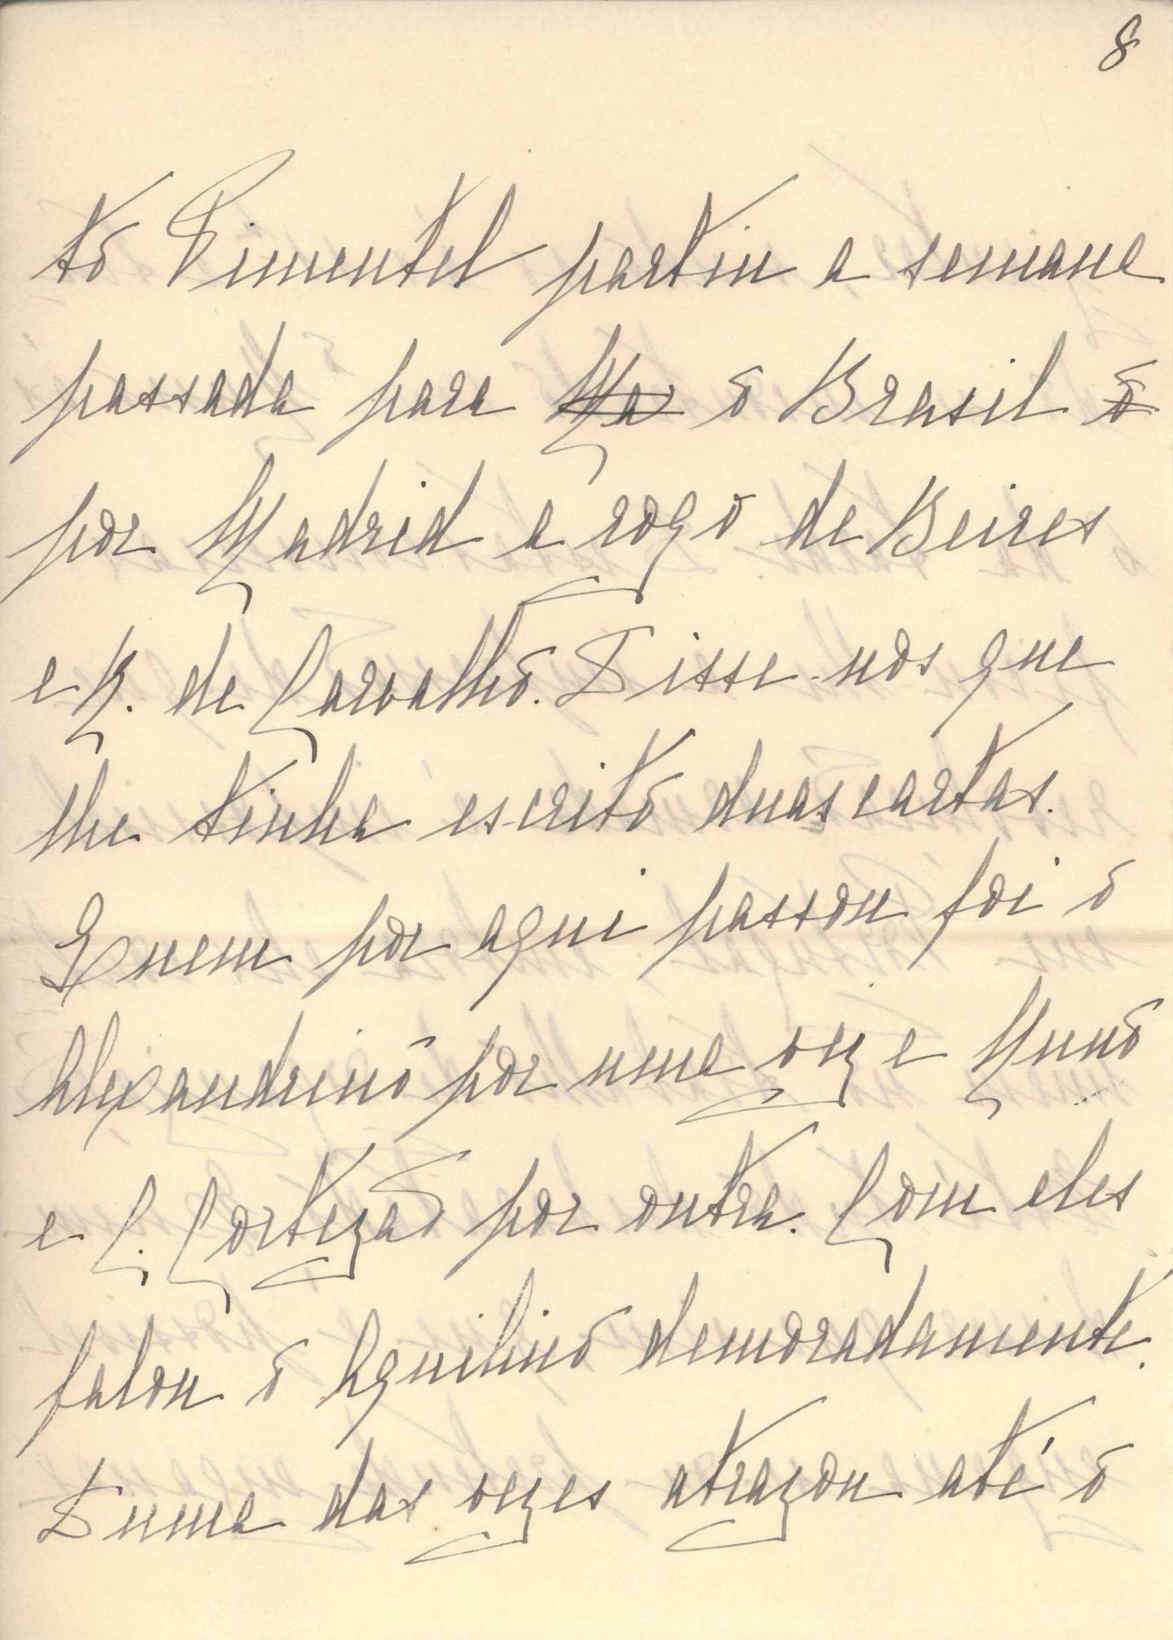 8
to Pimentel partiu a semana
passada para Ma o Brasil o
por Madrid a rogo de Beires
e N. de Carvalho. Disse-nos que
lhe tinha escrito duas cartas.
Quem por aqui passou foi o
Alexandrino por uma vez e Nuno
e C. Cortezão por outra. Com eles
falou o Aquilino demoradamente.
Duma das vezes atrazou até o